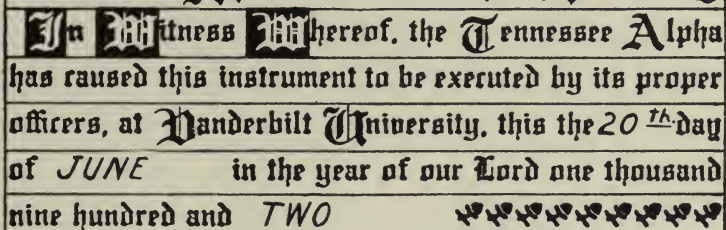 In Witness Whereof, the Tennessee Alpha
has caused this instrument to be executed by its proper
officers, at Vanderbilt University, this the 20th day
of JUNE in the year of our Lord one thousand
nine hundred and TWO